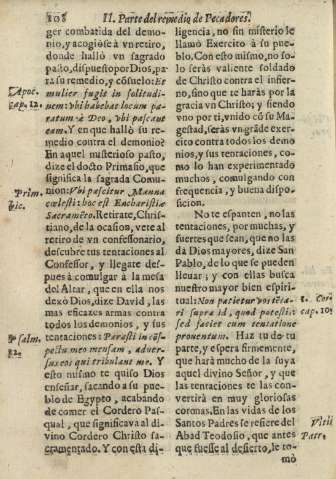 208 II. Parte del remedio de Pecadores.
ger combatida del demo-
nio, y acogiòse à vn retiro,
donde hallò vn sagrado
pasto, dispuesto por Dios, pa-
ra su remedio, y cõsuelo: Et
mulier fugit in solitudi-
nem: vbi habebat locum pa-
ratum à Deo, vbi pascant
eam. Y en que hallò su re-
medio contra el demonio?
En aquel misterioso pasto,
dize el docto Primasio, que
significa la sagrada Comu-
nion: Vbi pascitur Manna
cœlesti: hoc est Eucharistiæ
Sacramẽto. Retirate, Chris-
tiano, de la ocasion, vete al
retiro de vn confessonario,
descubre tus tentaciones al
Confessor, y llegate des-
pues à comulgar à la mesa
del Altar, que en ella nos
dexò Dios, dize David, las
mas eficazes armas contra
todos los demonios, y sus
tentaciones: Parasti in cõs-
pectu meo mensam, adver-
sus eos qui tribulant me. Y
esto mismo te quiso Dios
enseñar, sacando a su pue-
blo de Egypto, acabando
de comer el Cordero Pas-
qual, que significava al di-
vino Cordero Christo sa-
cramentado. Y con esta di-
Apoc.
cap. 12.
Prim.
hic.
Psalm.
22.
ligencia, no sin misterio le
llamò Exercito à su pue-
blo. Con esto mismo, no so-
lo seràs valiente soldado
de Christo contra el infier-
no, sino que te haràs por la
gracia vn Christo; y siendo
vno por ti, vnido cõ su Ma-
gestad, seràs vn grãde exer-
cito contra todos los demo
nios, y sus tentaciones, co-
mo lo han experimentado
muchos, comulgando con
frequencia, y buena dispo-
sicion.
No te espanten, no las
tentaciones, por muchas, y
fuertes que sean, que no las
dà Dios mayores, dize San
Pablo, de lo que se pueden
llevar; y con ellas busca
nuestro mayor bien espiri-
tual: Non patietur vos tẽta-
ri supra id, quod potestis:
sed faciet cum tentatione
proventum. Haz tu de tu
parte, y espera firmemente,
que harà mucho de la suya
aquel divino Señor, y que
las tentaciones te las con-
vertirà en muy gloriosas
coronas. En las vidas de los
Santos Padres se refiere del
Abad Teodosio, que antes
que fuesse al desierto, le to-
mò
1. Cor.
cap. 10.
Vitis
Patr.